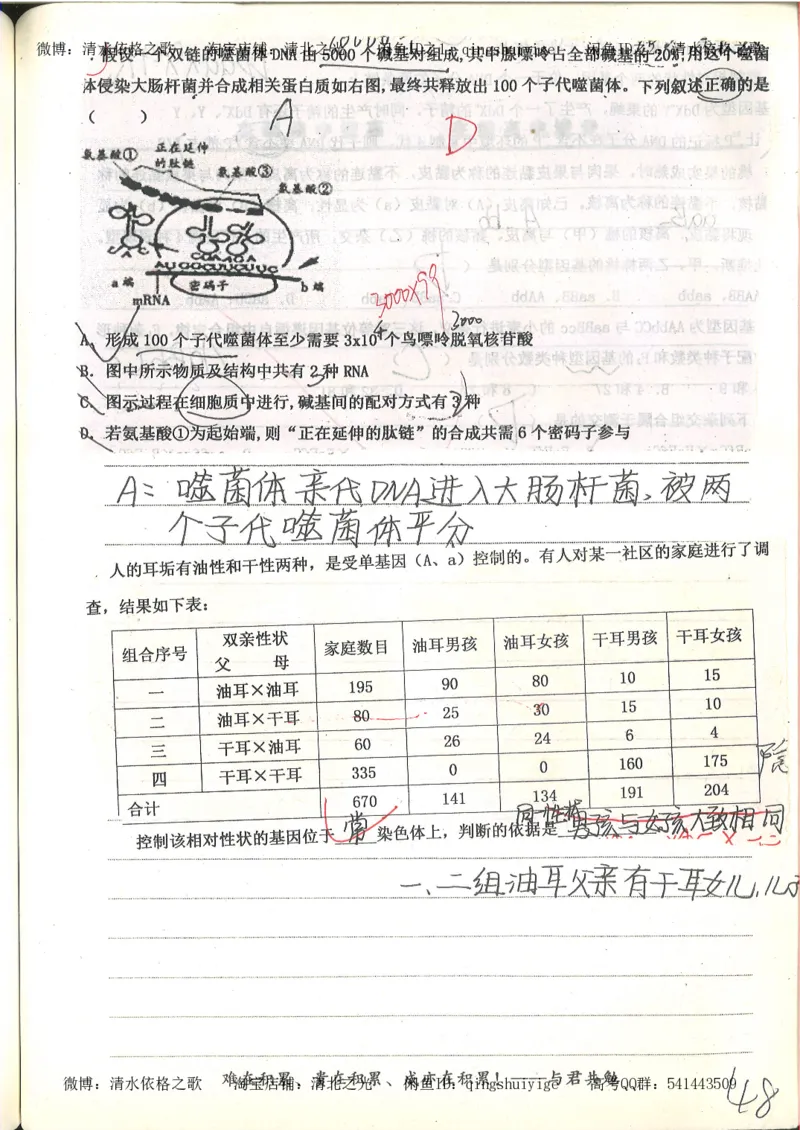 微博：清水依格之歌 淘宝店铺：清北之 闲鱼ID：qingshuiyige
假设一个双链的噬菌体DNA由5000个碱基对组成,其中腺嘌呤占全部碱基的20%,用这个噬菌
体侵染大肠杆菌并合成相关蛋白质如右图,最终共释放出100个子代噬菌体。下列叙述正确的是
（ ）
A
D
氨基酸①
正在延伸
的肽链
氨基酸③
氨基酸②
a端
密码子
b端
mRNA
3000×99
3000
A、形成100个子代噬菌体至少需要3x10⁴个鸟嘌呤脱氧核苷酸
B．图中所示物质及结构中共有2种RNA
C、图示过程在细胞质中进行,碱基间的配对方式有3种
D．若氨基酸①为起始端,则“正在延伸的肽链”的合成共需6个密码子参与
A：噬菌体亲代DNA进入大肠杆菌、被两
个子代噬菌体平分
人的耳垢有油性和干性两种，是受单基因（A、a）控制的。有人对某一社区的家庭进行了调
查，结果如下表：
组合序号 双亲性状 父 母 家庭数目 油耳男孩 油耳女孩 干耳男孩 干耳女孩
一 油耳×油耳 195 90 80 10 15
二 油耳×干耳 80 25 30 15 10
三 干耳×油耳 60 26 24 6 4
四 干耳×干耳 335 0 0 160 175
合计 670 141 134 191 204
控制该相对性状的基因位于 常 染色体上，判断的依据是 男孩与女孩大致相同
同性状
一、二组油耳父亲有干耳女儿,儿子
微博：清水依格之歌 淘宝店铺：清北之光 闲鱼ID：qingshuiyige 高考QQ群：541443509
难在积累、贵在积累、成亦在积累！——与君共勉
48